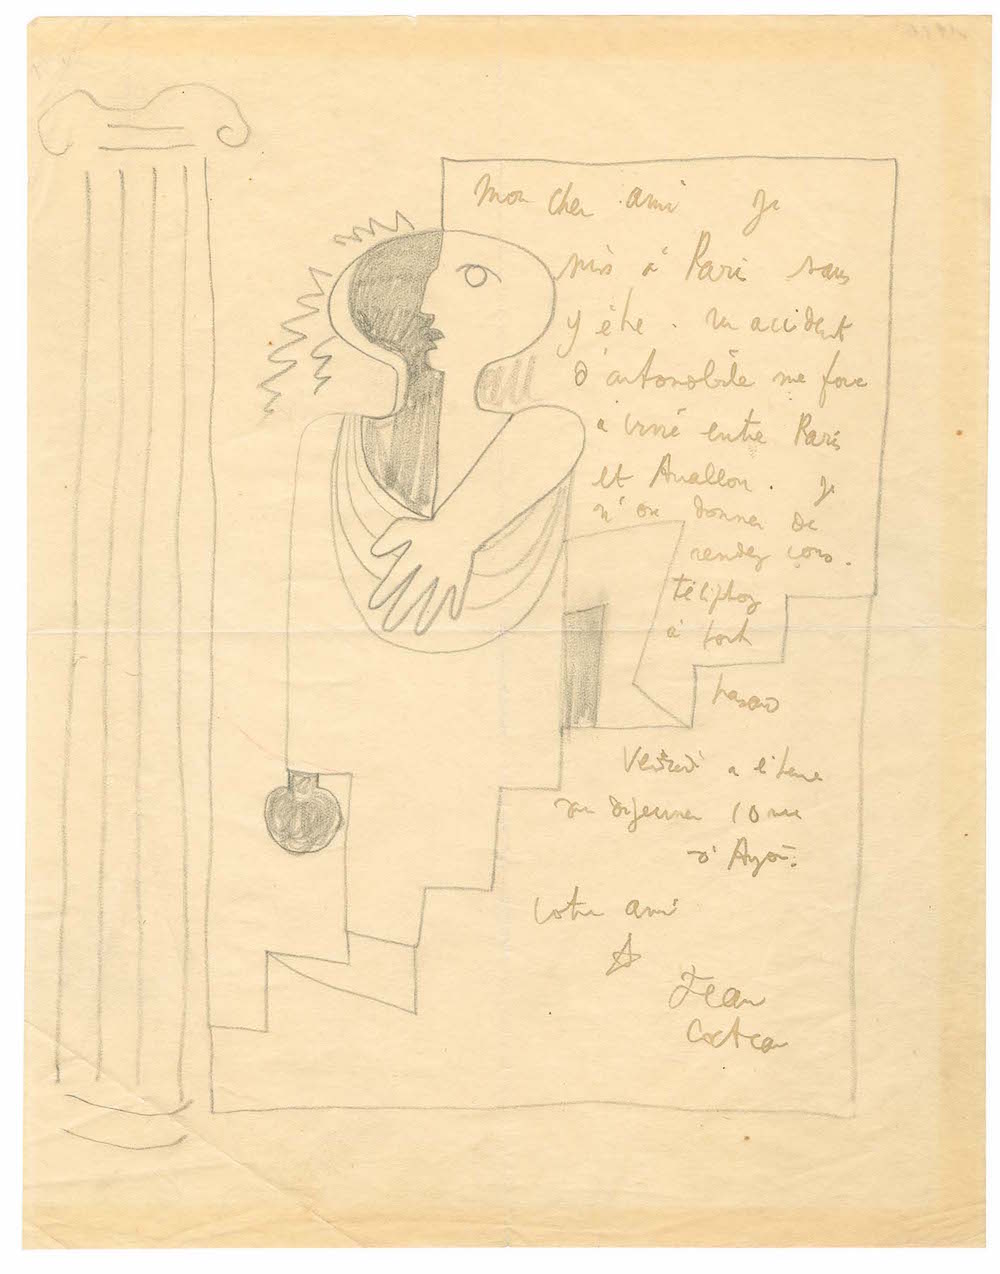 Mon cher ami je
suis à Paris sans
y être. Un accident
d'automobile me force
à vivre entre Paris
et Avallon. Je
n'ose donner de
rendez vous.
téléphonez
à tout
hasard
Vendredi à l'heure
du déjeuner 10 rue
d'Anjou.
Votre ami
Jean
Cocteau